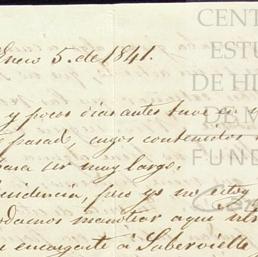 Enero 5. de 1841.
y pocos dias antes tuve
pasad, cuyos contenidos
para ser muy largo.
idencia, pues yo no estoy
podamos mandar aqui otr
encargaste á Laberville
CENT
ESTU
DE HI
DE M
FUND